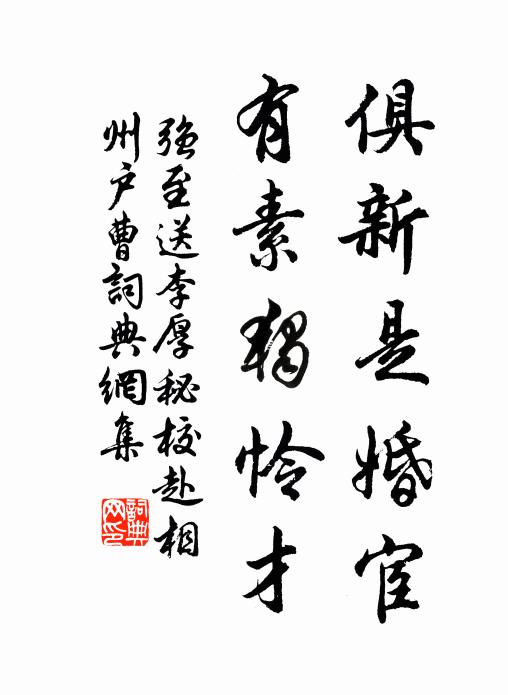 俱新是婚宦
有素獨憐才
強至送李厚秘校赴相
州户曹詞典網集
詞典
网印